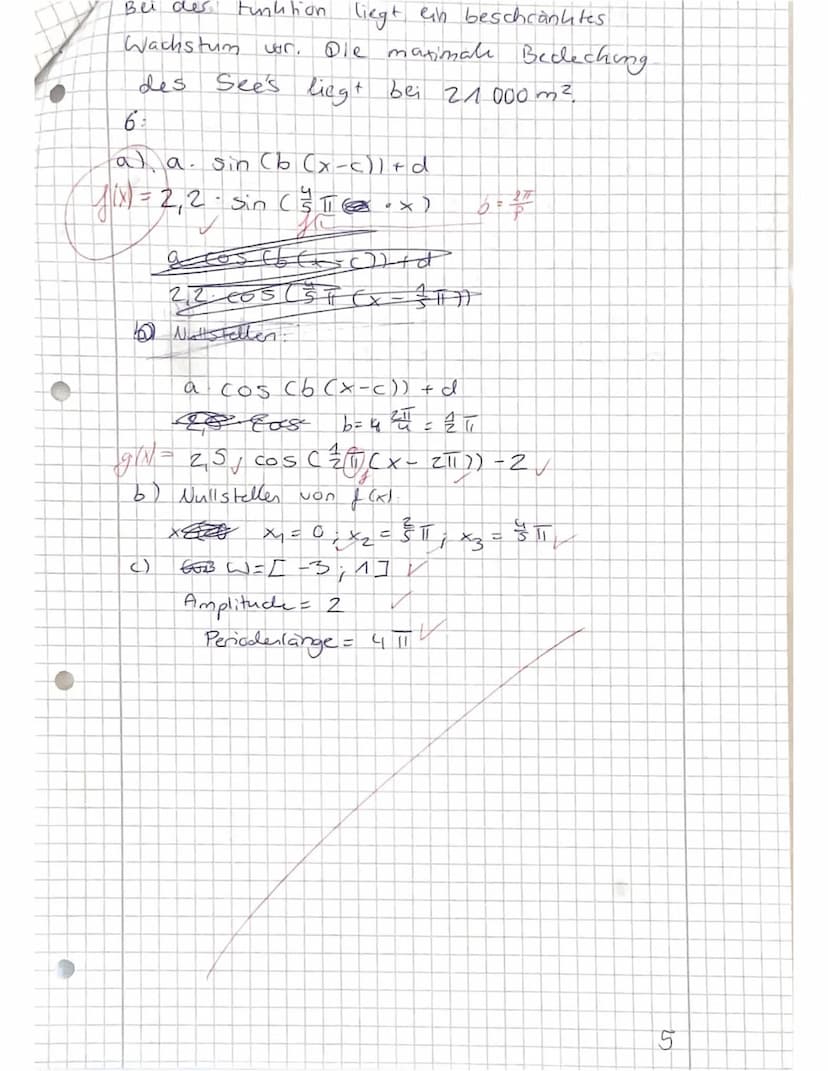 Bei der Funktion liegt ein beschränktes
Wachstum vor. Die maximale Bedeckung
des See's liegt bei 21 000 m².
6:
a) a · sin (b (x-c)) + d
f(x) = 2,2 · sin (4/5 π · x) b = 2π/p
a cos (b (x-c)) + d
2,2 · cos (4/5 π (x - 1/5 π))
b) Nullstellen:
a · cos (b (x-c)) + d
b = 4 2π/4 = 1/2 π
g(x) = 2,5 cos (1/2 π (x - 2π)) - 2
b) Nullstellen von f(x).
x₁ = 0; x₂ = 2/5 π; x₃ = 4/5 π
c) W = [-3; 1]
Amplitude = 2
Periodenlänge = 4π
5